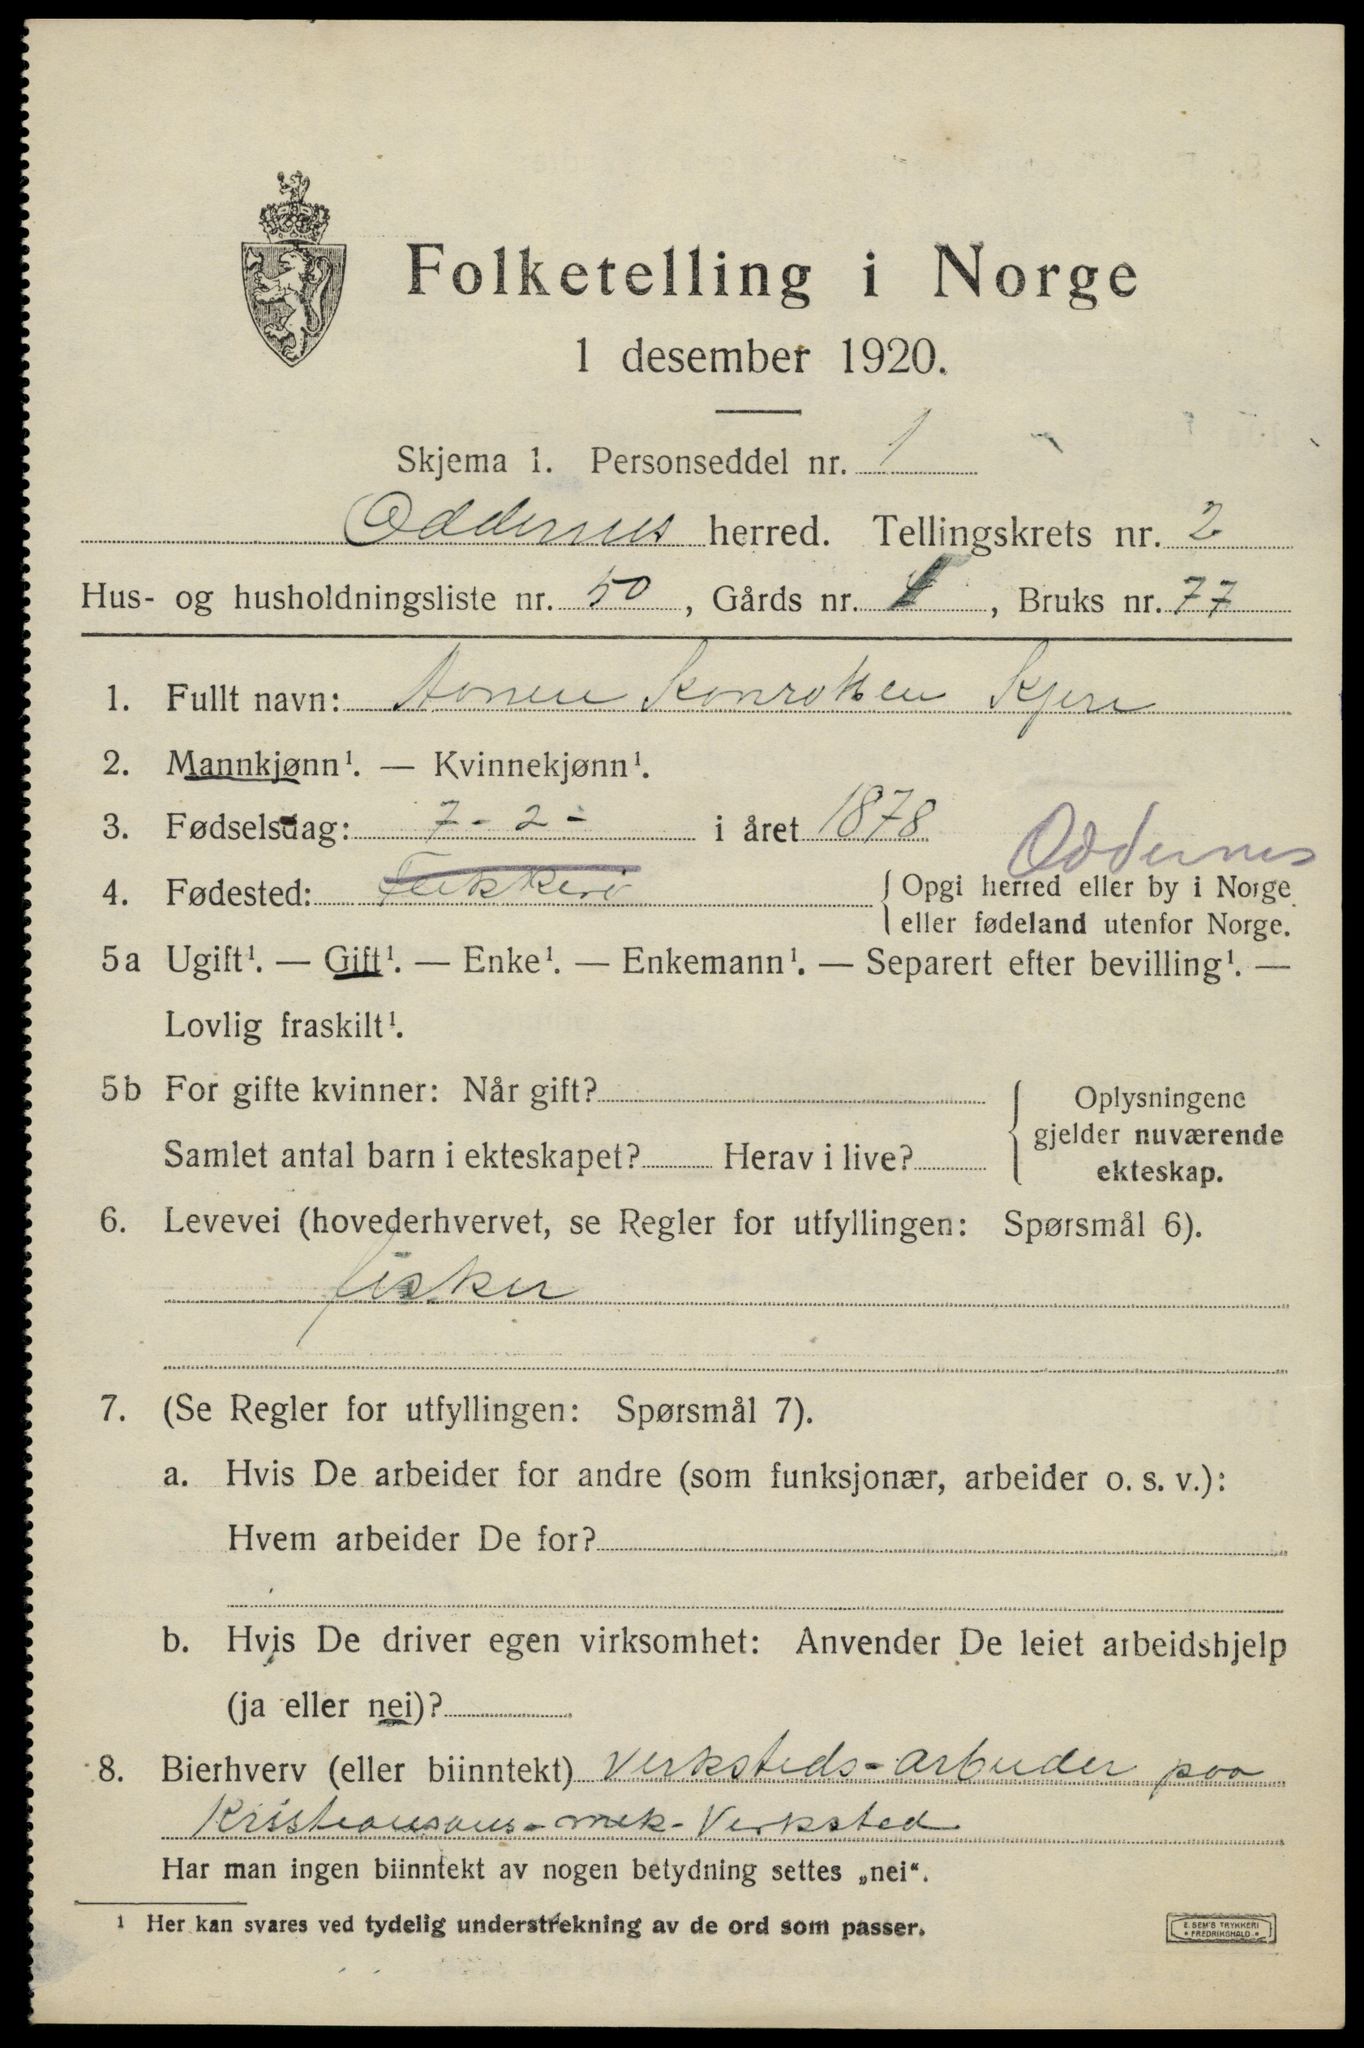 Folketelling i Norge
1 desember 1920.
Skjema 1. Personseddel nr. 1
Oddernes herred. Tellingskrets nr. 2
Hus- og husholdningsliste nr. 50, Gårds nr. , Bruks nr. 77
1. Fullt navn:
2. Mannkjønn¹. — Kvinnekjønn¹.
3. Fødselsdag: 7-2- i året 1878
Oddernes
4. Fødested: Flekkerø { Opgi herred eller by i Norge
eller fødeland utenfor Norge.
5a Ugift¹. — Gift¹. — Enke¹. — Enkemann¹. — Separert efter bevilling¹. —
Lovlig fraskilt¹.
5b For gifte kvinner: Når gift?
Samlet antal barn i ekteskapet? Herav i live?
Oplysningene
gjelder nuværende
ekteskap.
6. Levevei (hovederhvervet, se Regler for utfyllingen: Spørsmål 6).
fisker
7. (Se Regler for utfyllingen: Spørsmål 7).
a. Hvis De arbeider for andre (som funksjonær, arbeider o. s. v.):
Hvem arbeider De for?
b. Hvis De driver egen virksomhet: Anvender De leiet arbeidshjelp
(ja eller nei)?
8. Bierhverv (eller biinntekt) Verksteds-arbeider paa
Kristiansans-mek-Verksted
Har man ingen biinntekt av nogen betydning settes „nei“.
¹ Her kan svares ved tydelig understrekning av de ord som passer.
E. SEM'S TRYKKERI
FREDRIKSHALD